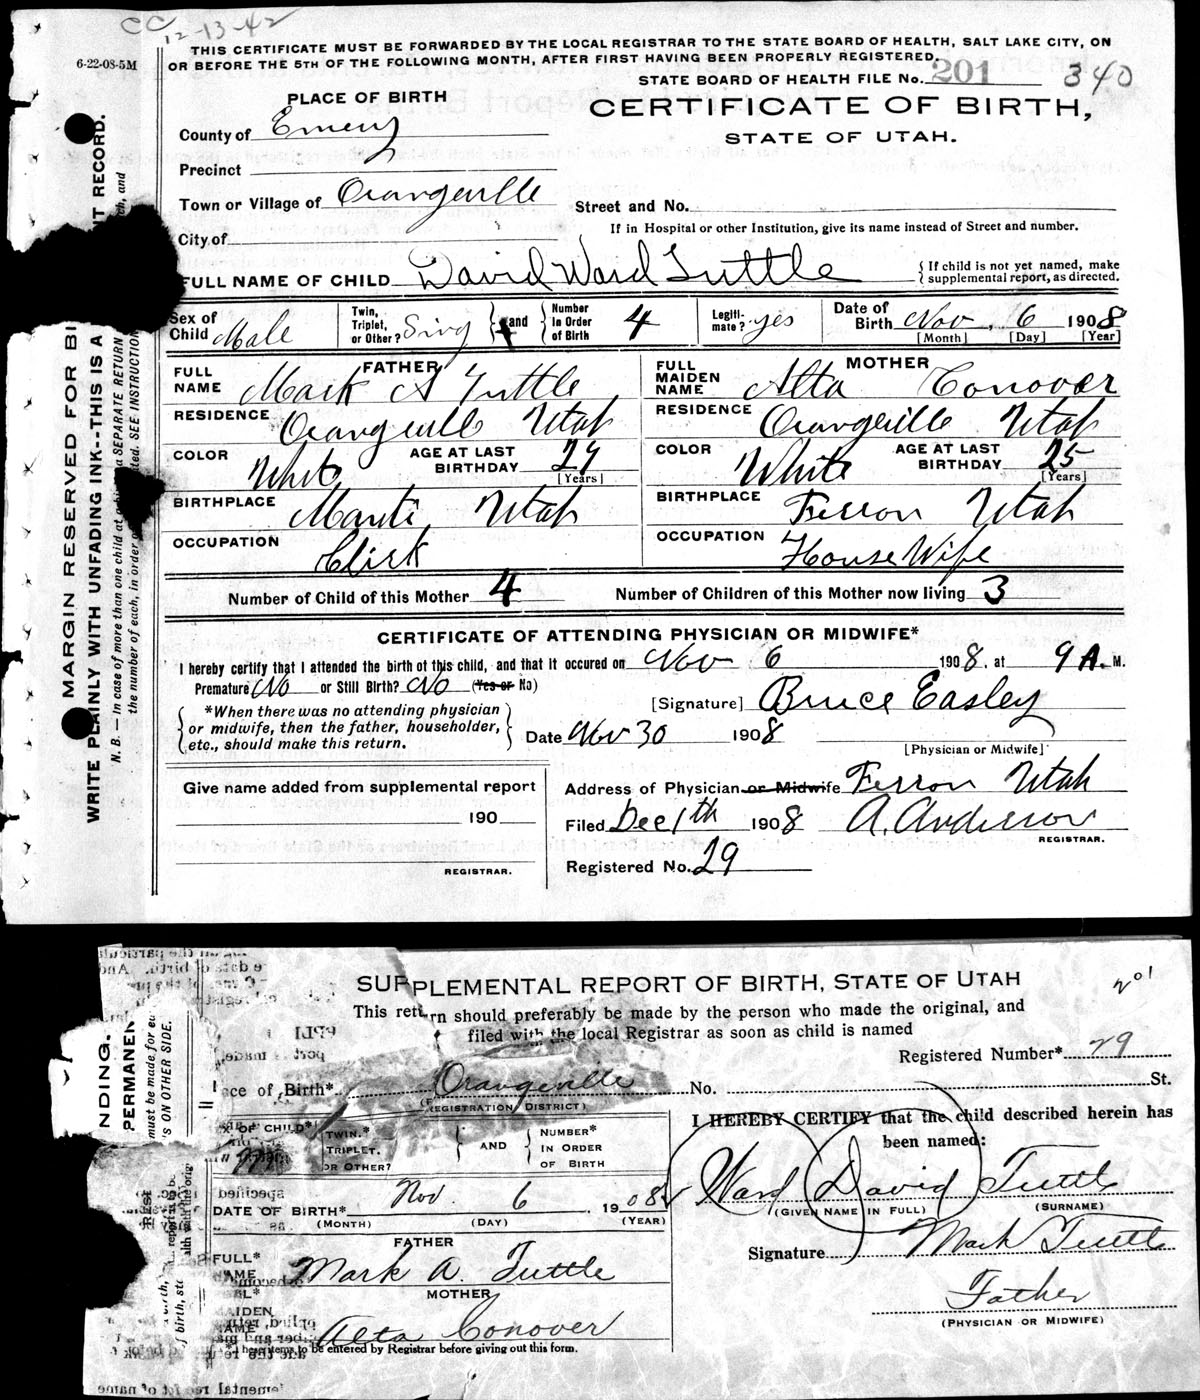 CC 12-13-42
THIS CERTIFICATE MUST BE FORWARDED BY THE LOCAL REGISTRAR TO THE STATE BOARD OF HEALTH, SALT LAKE CITY, ON
6-22-08-5M
OR BEFORE THE 5TH OF THE FOLLOWING MONTH, AFTER FIRST HAVING BEEN PROPERLY REGISTERED.
STATE BOARD OF HEALTH FILE No. 201 340
PLACE OF BIRTH
CERTIFICATE OF BIRTH,
STATE OF UTAH.
County of Emery
Precinct
Town or Village of Orangeville
Street and No.
If in Hospital or other Institution, give its name instead of Street and number.
City of
FULL NAME OF CHILD David Ward Tuttle
{ If child is not yet named, make supplemental report, as directed.
Sex of Child Male
Twin, Triplet, or Other? Sing
and
Number In Order of Birth 4
Legiti- mate? yes
Date of Birth Nov. 6 1908
[Month] [Day] [Year]
FATHER
FULL NAME Mark A Tuttle
MOTHER
FULL MAIDEN NAME Alta Conover
RESIDENCE Orangeville Utah
RESIDENCE Orangeville Utah
COLOR White AGE AT LAST BIRTHDAY 29 [Years]
COLOR White AGE AT LAST BIRTHDAY 25 [Years]
BIRTHPLACE Manti, Utah
BIRTHPLACE Ferron Utah
OCCUPATION Clirk
OCCUPATION House Wife
Number of Child of this Mother 4
Number of Children of this Mother now living 3
CERTIFICATE OF ATTENDING PHYSICIAN OR MIDWIFE*
I hereby certify that I attended the birth of this child, and that it occured on Nov 6 1908, at 9 A. M.
Premature No or Still Birth? No (Yes or No)
[Signature] Bruce Easley
[Physician or Midwife]
*When there was no attending physician
or midwife, then the father, householder,
etc., should make this return.
Date Nov 30 1908
Give name added from supplemental report
190
REGISTRAR.
Address of Physician or Midwife Ferron Utah
Filed Dec 1th 1908 A. Anderson
REGISTRAR.
Registered No. 29
MARGIN RESERVED FOR BI
WRITE PLAINLY WITH UNFADING INK--THIS IS A
NT RECORD.
N. B. — In case of more than one child at
a SEPARATE RETURN
the number of each, in order of
ted. SEE INSTRUCTION
SUPPLEMENTAL REPORT OF BIRTH, STATE OF UTAH
201
This return should preferably be made by the person who made the original, and
filed with the local Registrar as soon as child is named
Registered Number* 29
ace of Birth* Orangeville No. St.
(REGISTRATION DISTRICT)
X OF CHILD*
TWIN,* TRIPLET, OR OTHER?
AND
NUMBER* IN ORDER OF BIRTH
I HEREBY CERTIFY that the child described herein has
been named:
Ward David Tuttle
(GIVEN NAME IN FULL) (SURNAME)
DATE OF BIRTH* Nov. 6 1908
(MONTH) (DAY) (YEAR)
Signature Mark Tuttle
Father
(PHYSICIAN OR MIDWIFE)
FATHER
FULL* NAME Mark A. Tuttle
MOTHER
AIDEN NAME Alta Conover
to be entered by Registrar before giving out this form.
NDING.
PERMANEN
must be made for ea
S ON OTHER SIDE.